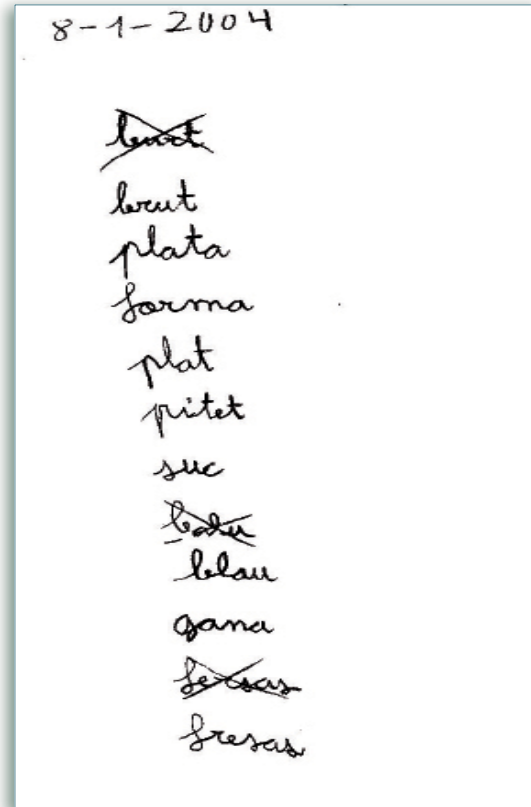 8-1-2004
brut
plata
forma
plat
pitet
suc
balu
blau
gana
fersas
fresas